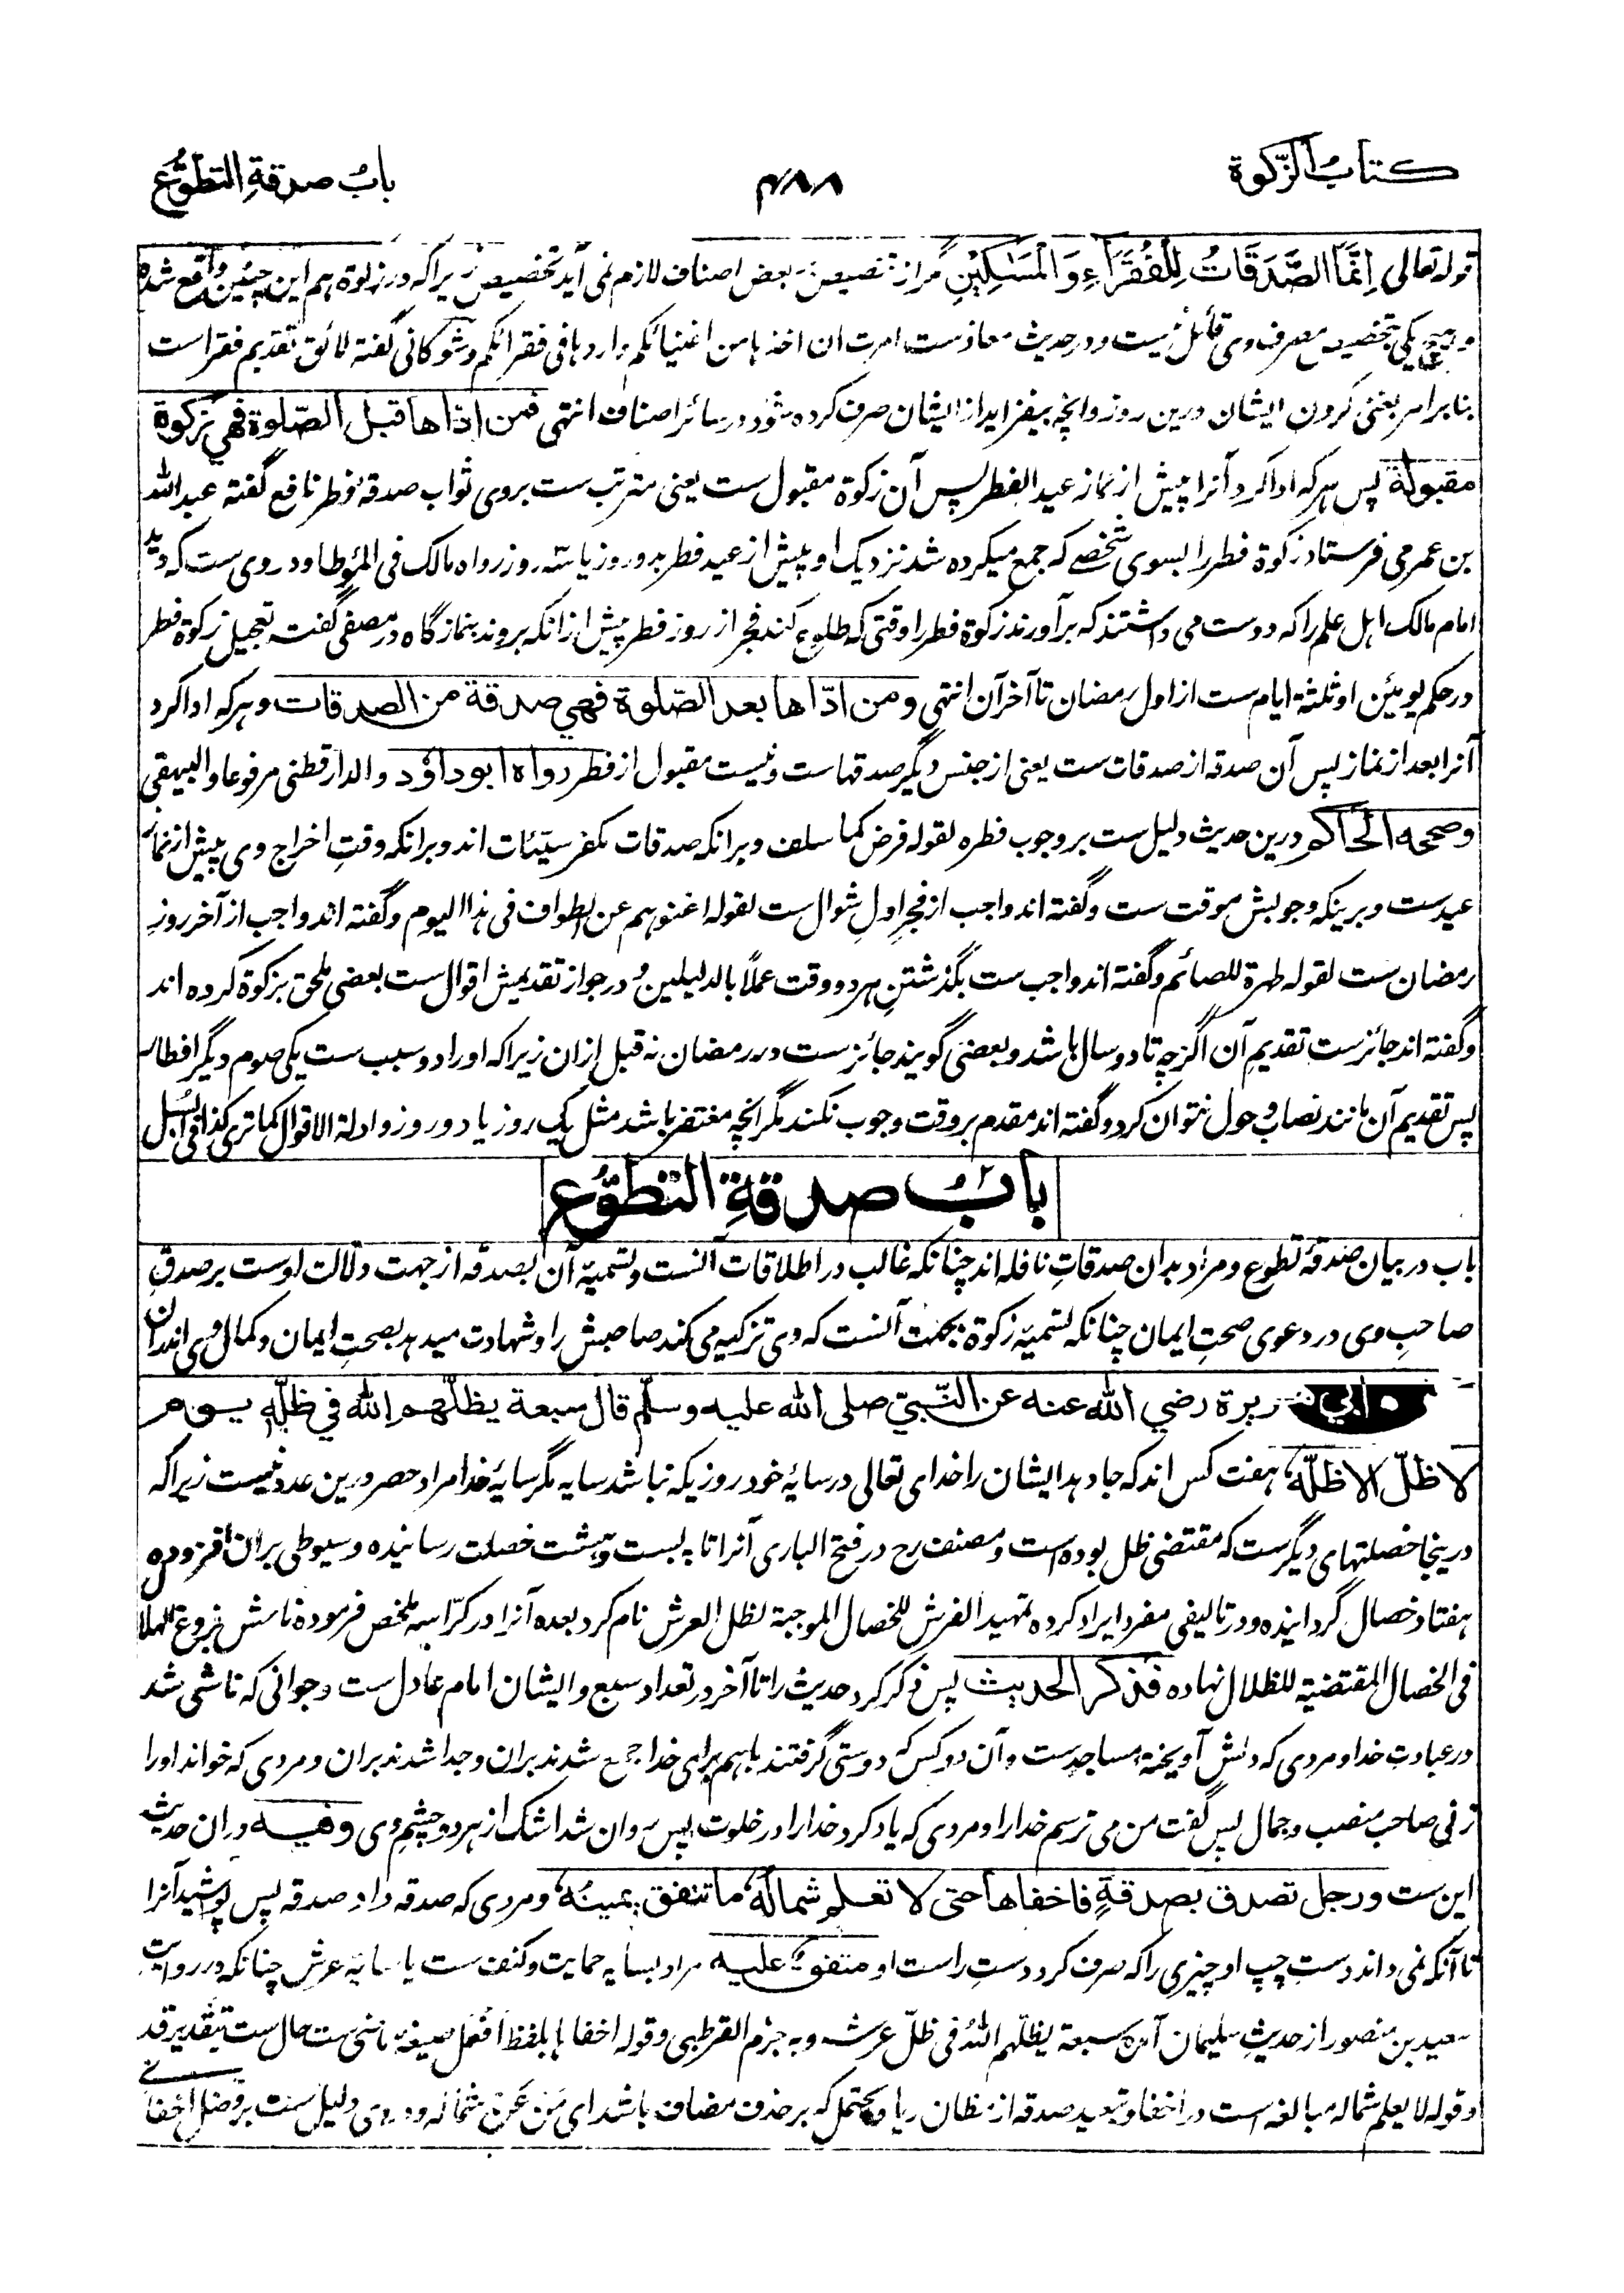 كتاب الزكوة
۴۸۸
باب صدقة التطوع
قوله تعالى إنما الصدقات للفقراء والمساكين مراز تنصيص بعض اصناف لازم نمی آید تخصیص زیراکه در زکوة هم این چنین واقع شده
و هیچ یکی بتخصیص مصرف وی قائل نیست و در حدیث معاذست امرت ان اخذها من اغنیائکم واردها فی فقرائکم و شوکانی گفته لائق تقدیم فقراست
بنا بر امر بغنی کردن ایشان درین روز وانچه بیفزاید از ایشان صرف کرده شود در سائر اصناف انتهی فمن ادّاها قبل الصّلوة فهي زكوة
مقبولة پس هر که ادا کرد آنرا پیش از نماز عید الفطر پس آن زکوة مقبول ست یعنی مترتب ست بروی ثواب صدقهٔ فطر نافع گفته عبدالله
بن عمر می فرستاد زکوة فطر را بسوی شخصے که جمع میکرده شد نزدیک او پیش از عید فطر بدو روز یا سه روز رواه مالک فی المؤطا و در وی ست که دید
امام مالک اهل علم را که دوست می داشتند که برآورند زکوة فطر را وقتی که طلوع کند فجر از روز فطر پیش ازانکه بروند بنمازگاه در مصفی گفت تعجیل زکوة فطر
در حکم یومین او ثلثة ایام ست از اول رمضان تا آخر آن انتهی ومن ادّاها بعد الصّلوة فهي صدقة من الصدقات و هر که ادا کرد
آنرا بعد از نماز پس آن صدقه از صدقات ست یعنی از جنس دیگر صدقهاست و نیست مقبول از فطر رواه ابوداؤد والدارقطنی مرفوعا والبیهقی
وصححه الحاكم درین حدیث دلیل ست بر وجوب فطره لقوله فرض کما سلف و برانکه صدقات مکفر سیّئات اند و برانکه وقتِ اخراج وی پیش از نماز
عیدست و برینکه وجوبش موقت ست و گفته اند واجب از فجرِ اولِ شوال ست لقوله اغنوهم عن الطواف فی هذا الیوم و گفته اند واجب از آخر روزِ
رمضان ست لقوله طهرة للصائم و گفته اند واجب ست بگذشتنِ هر دو وقت عملًا بالدلیلین و در جواز تقدیمش اقوال ست بعضی ملحق بزکوة کرده اند
و گفته اند جائزست تقدیمِ آن اگرچه تا دو سال باشد و بعضی گویند جائزست در رمضان نه قبل ازان زیراکه اورا دو سبب ست یکی صوم دیگر افطار
پس تقدیم آن مانند نصاب و حول نتوان کرد و گفته اند مقدم بر وقت وجوب نکند مگر انچه مغتفر باشد مثل یک روز یا دو روز وادلة الاقوال کما تری کذا فی السبل
باب صدقة التطوع
باب در بیان صدقهٔ تطوع و مراد بدان صدقاتِ نافله اند چنانکه غالب در اطلاقات آنست و تسمیهٔ آن بصدقه از جهت دلالت اوست بر صدقِ
صاحبِ وی در دعوی صحتِ ایمان چنانکه تسمیهٔ زکوة بجهت آنست که وی تزکیه می کند صاحبش را و شهادت میدهد بصحتِ ایمان و کمال وی
ابي هريرة رضي الله عنه عن النبيّ صلى الله عليه وسلّم قال سبعة يظلّهم الله في ظلّه يوم
لا ظلّ إلا ظلّه، هفت کس اند که جا دهد ایشان را خدای تعالی در سایهٔ خود روزیکه نباشد سایه مگر سایهٔ خدا مراد حصر درین عدد نیست زیراکه
درینجا خصلتهای دیگرست که مقتضی ظل بوده است و مصنف رح در فتح الباری آنرا تا به بست و هشت خصلت رسانیده و سیوطی بران افزوده
هفتاد خصال گردانیده و در تالیفی مفرد ایراد کرده تمهید الفرش للخصال الموجبة لظل العرش نام کرد بعده آنرا در کرّاسه ملخص فرموده نامش بزوغ الهلال
فی الخصال المقتضیة للظلال نهاده فذكر الحديث پس ذکر کرد حدیث را تا آخر در تعداد سبع و ایشان امام عادل ست و جوانی که ناشی شد
در عبادتِ خدا و مردی که دلش آویخته بمساجدست و آن دو کس که دوستی گرفتند باهم برای خدا جمع شدند بران و جدا شدند بران و مردی که خواند اورا
زنی صاحب منصب و جمال پس گفت من می ترسم خدا را و مردی که یاد کرد خدا را در خلوت پس روان شد اشک از هر دو چشمِ وی وفيه و دران حدیث
این ست ورجل تصدق بصدقةٍ فاخفاها حتى لا تعلم شماله ما تنفق يمينه، و مردی که صدقه داد صدقه پس پوشید آنرا
تا آنکه نمی داند دستِ چپ او چیزی را که صرف کرد دستِ راست او متفق عليه مراد بسایه حمایت و کنف ست یا سایهٔ عرش چنانکه در روایت
سعید بن منصور از حدیثِ سلیمان آمده سبعة یظلهم الله فی ظلّ عرشه و به جزم القرطبی و قوله اخفاها بلفظ افعل صیغهٔ ماضی ست حال ست بتقدیر قد
و قوله لا یعلم شماله مبالغه است در اخفا و تبعید صدقه از مظان ریا و محتمل که بر حذف مضاف باشد ای مَن عَن شماله و در وی دلیل ست بر فضل اخفای